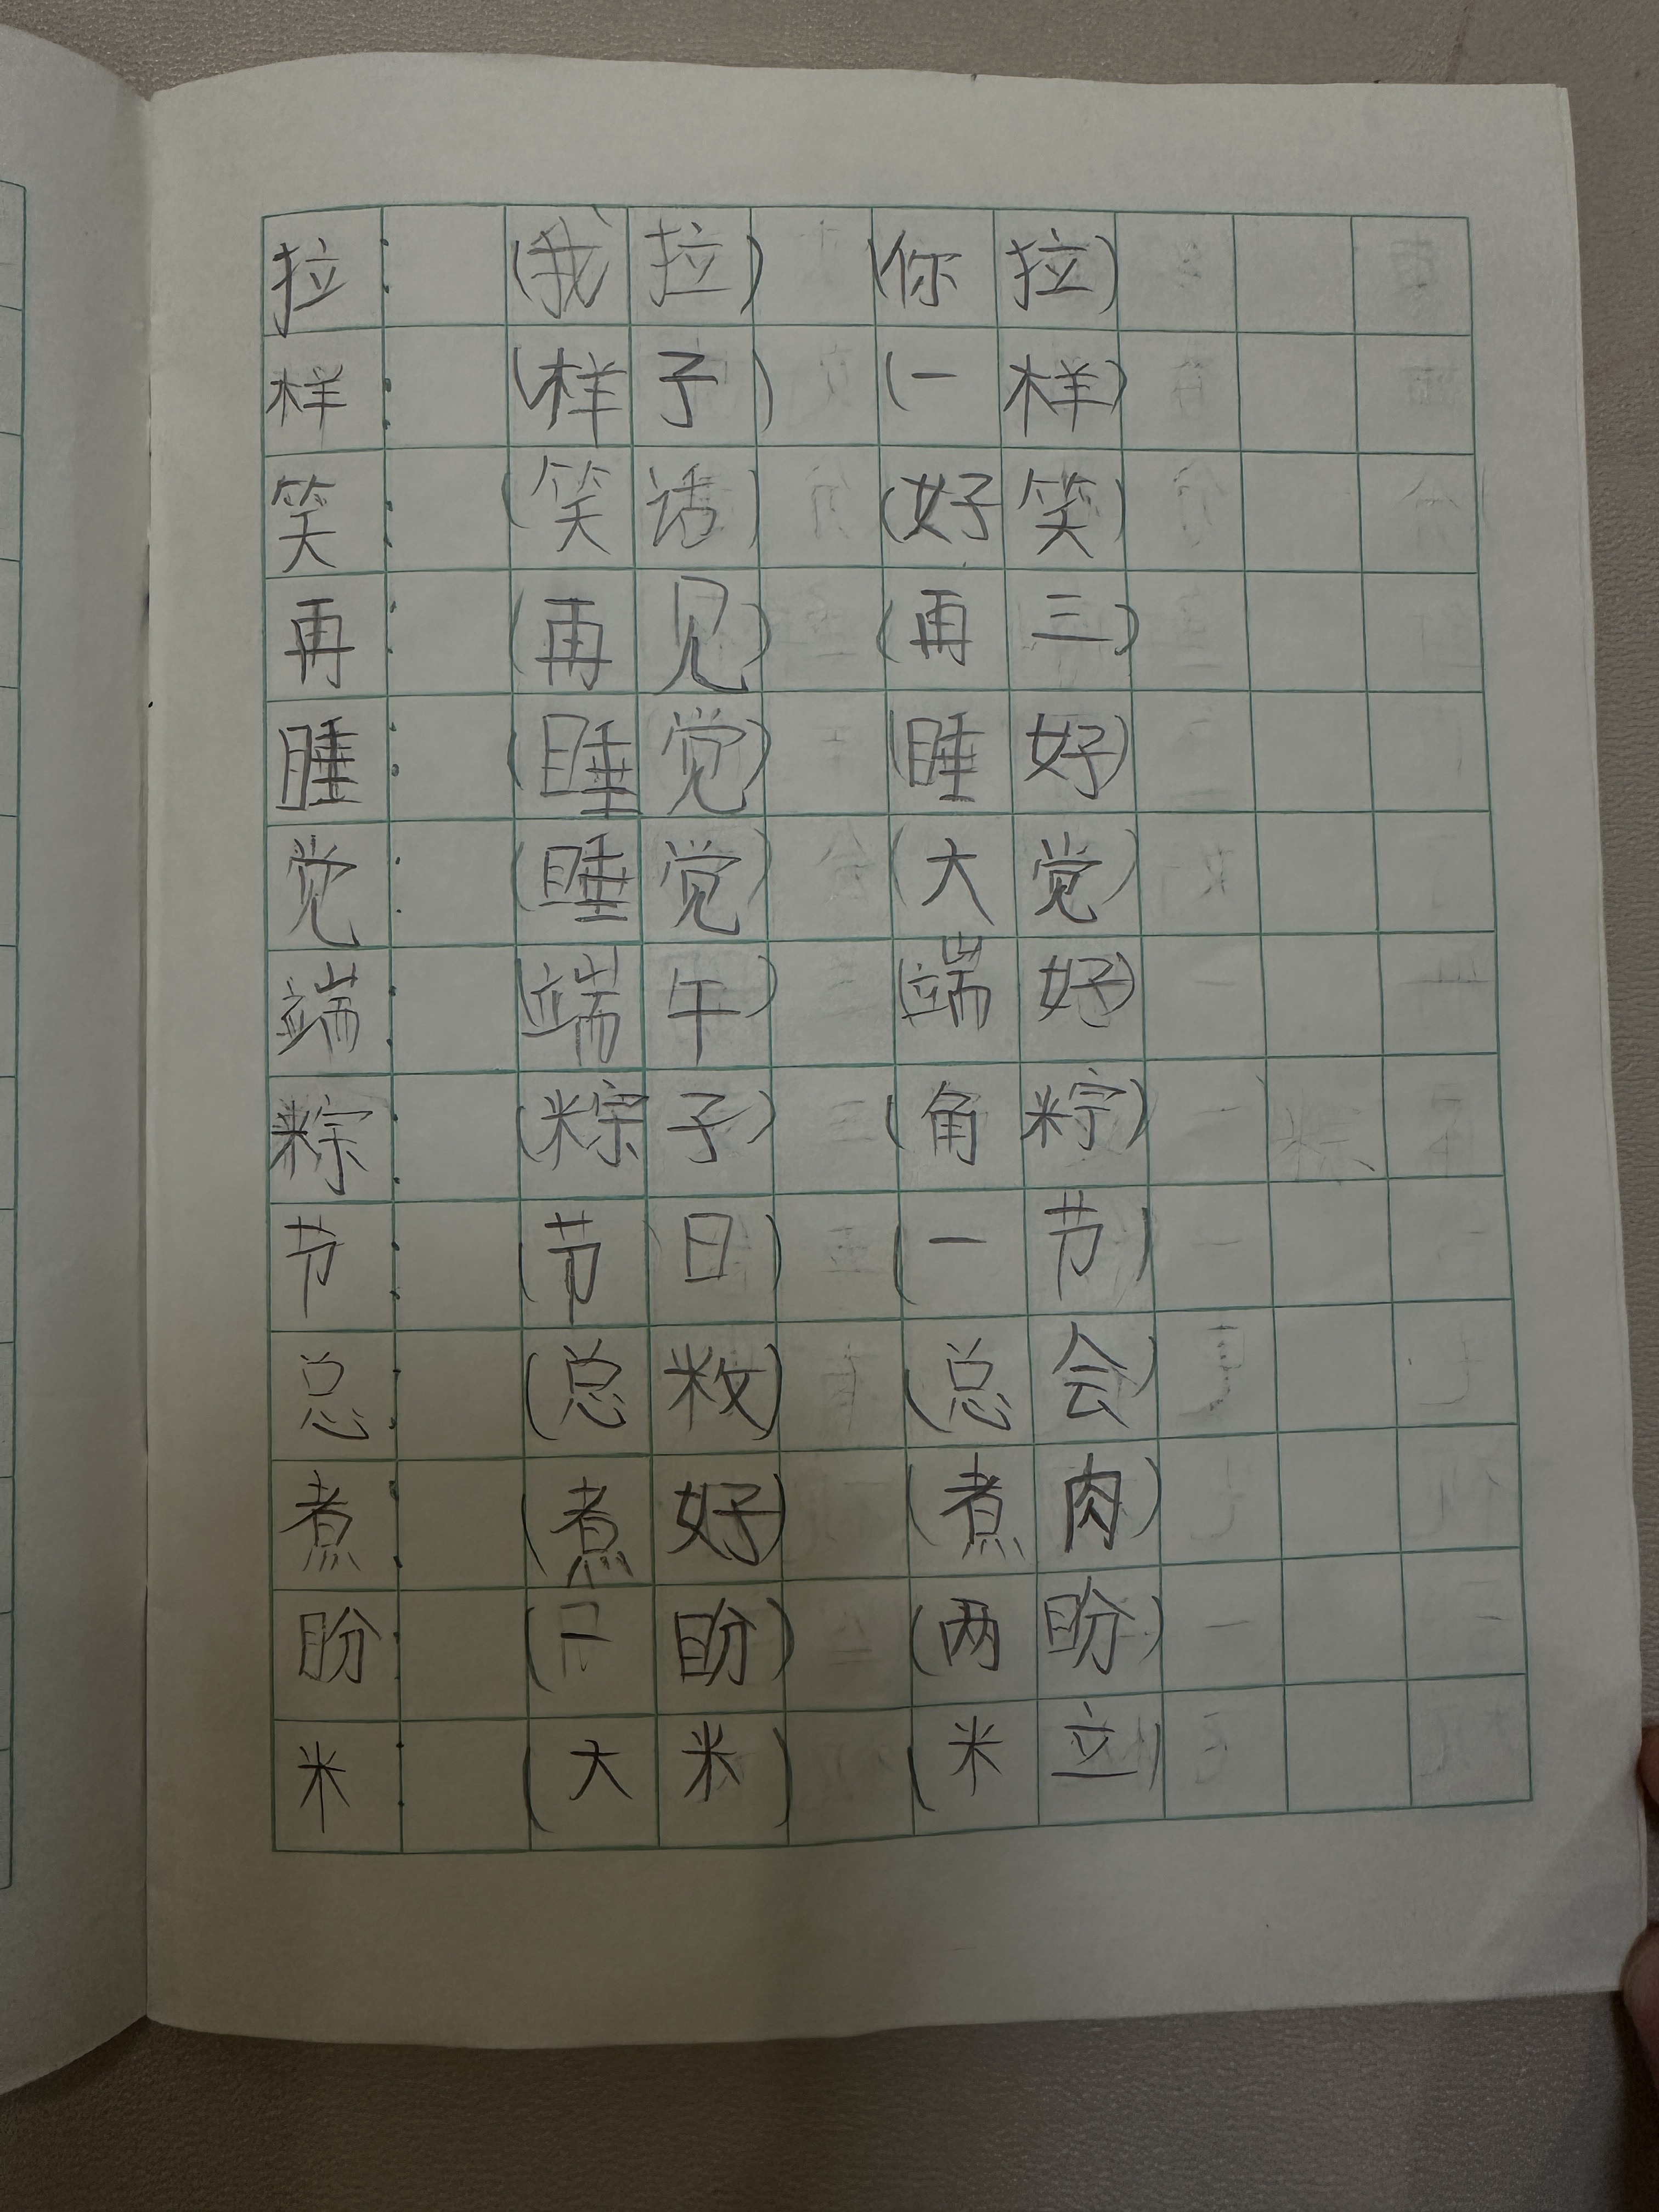 拉：（我拉）（你拉）
样：（样子）（一样）
笑：（笑话）（好笑）
再：（再见）（再三）
睡：（睡觉）（睡好）
觉：（睡觉）（大觉）
端：（端午）（端好）
粽：（粽子）（角粽）
节：（节日）（一节）
总：（总数）（总会）
煮：（煮好）（煮肉）
盼：（一盼）（两盼）
米：（大米）（米立）